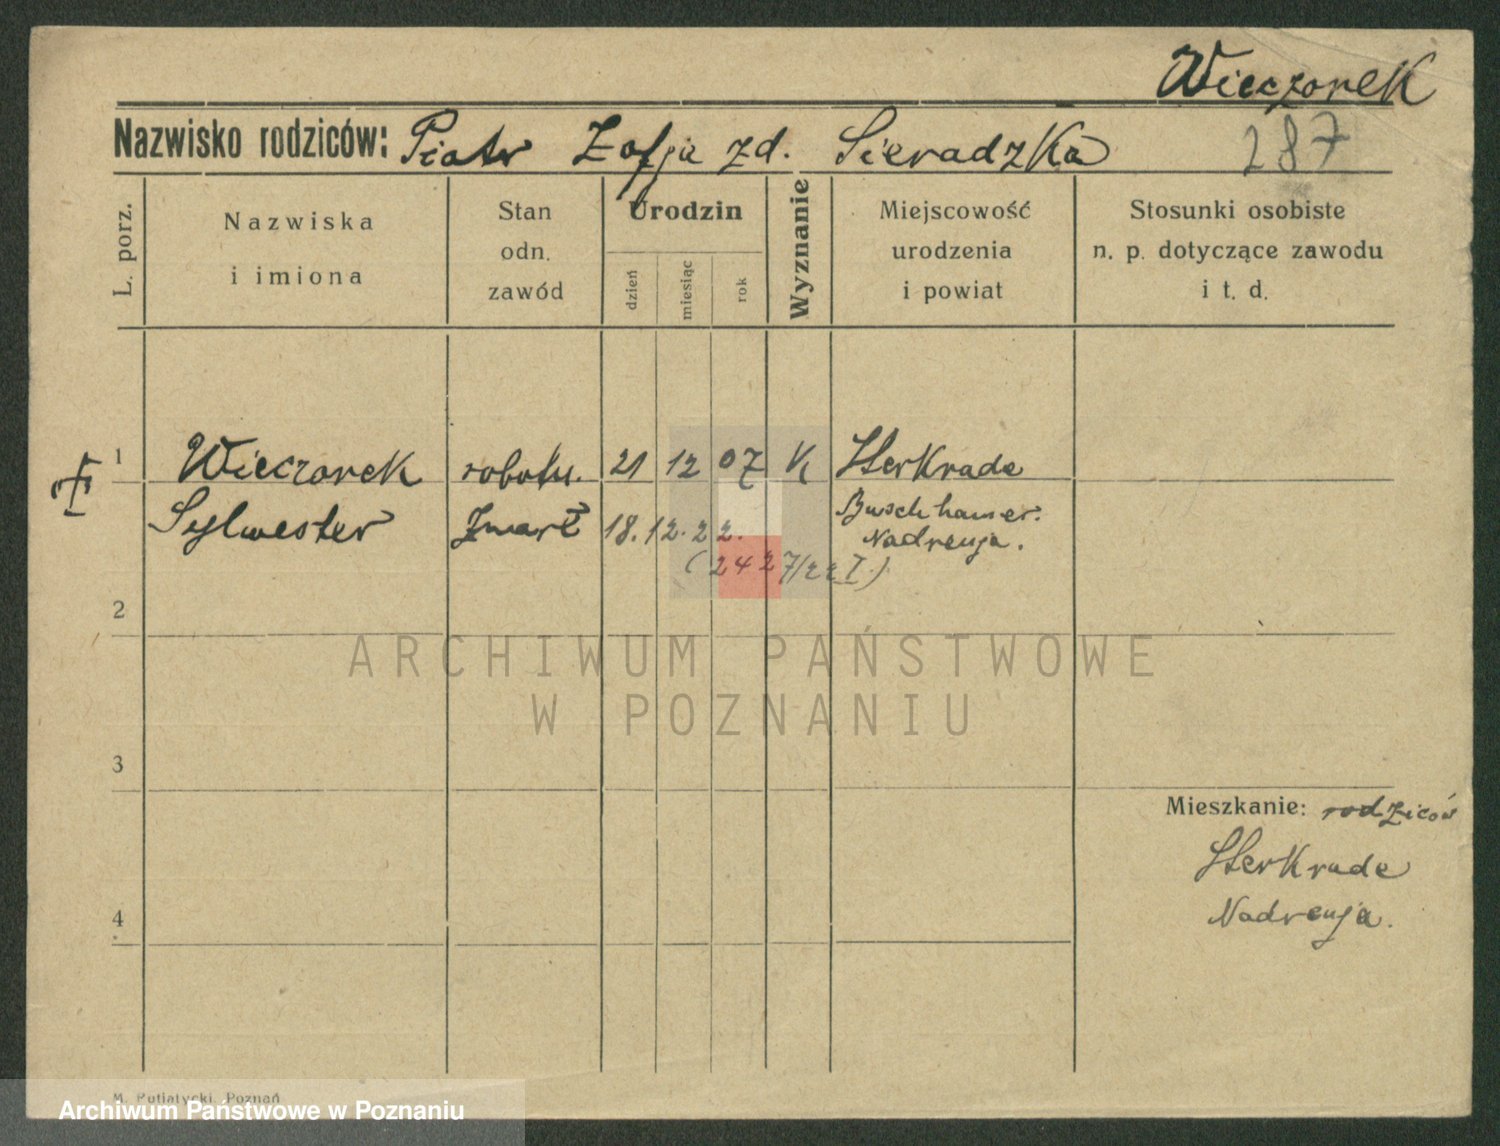 Wieczorek
Nazwisko rodziców: Piotr Zofja zd. Sieradzka 287
L. porz.
Nazwiska
i imiona
Stan
odn.
zawód
Urodzin
dzień
miesiąc
rok
Wyznanie
Miejscowość
urodzenia
i powiat
Stosunki osobiste
n. p. dotyczące zawodu
i t. d.
1 Wieczorek robotn. 21 12 07 K Sterkrade
Sylwester Zmarł 18.12.22. Buschhauser.
Nadrenja.
(2427/22 I)
2
ARCHIWUM PAŃSTWOWE
W POZNANIU
3
Mieszkanie: rodziców
Sterkrade
4 Nadrenja.
M. Putiatycki, Poznań
Archiwum Państwowe w Poznaniu